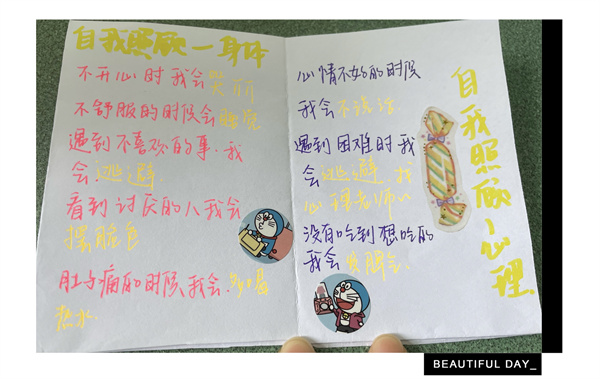 自我照顾—身体
不开心时我会哭
不舒服的时候会睡觉
遇到不喜欢的事.我
会逃避
看到讨厌的人我会
摆脸色
肚子痛的时候我会.多喝
热水.
心情不好的时候
我会不说话
遇到困难时我
会逃避 找
心理老师
没有吃到想吃的
我会发脾气.
自我照顾—心理
BEAUTIFUL DAY_